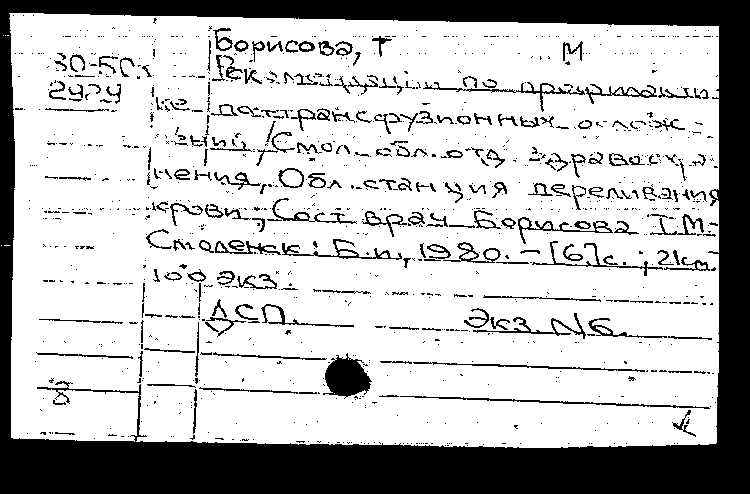 Борисова, Т М
30-50.
2929
Рекомендации по профилакти-
ке посттрансфузионных ослож-
ений / Смол. обл. отд. здравоохра-
нения, Обл. станция переливания
крови; Сост врач Борисова Т.М.-
Смоленск: Б.и., 1980. - [6]с.; 21см.
100 экз.
ДСП.
Экз. N6.
8